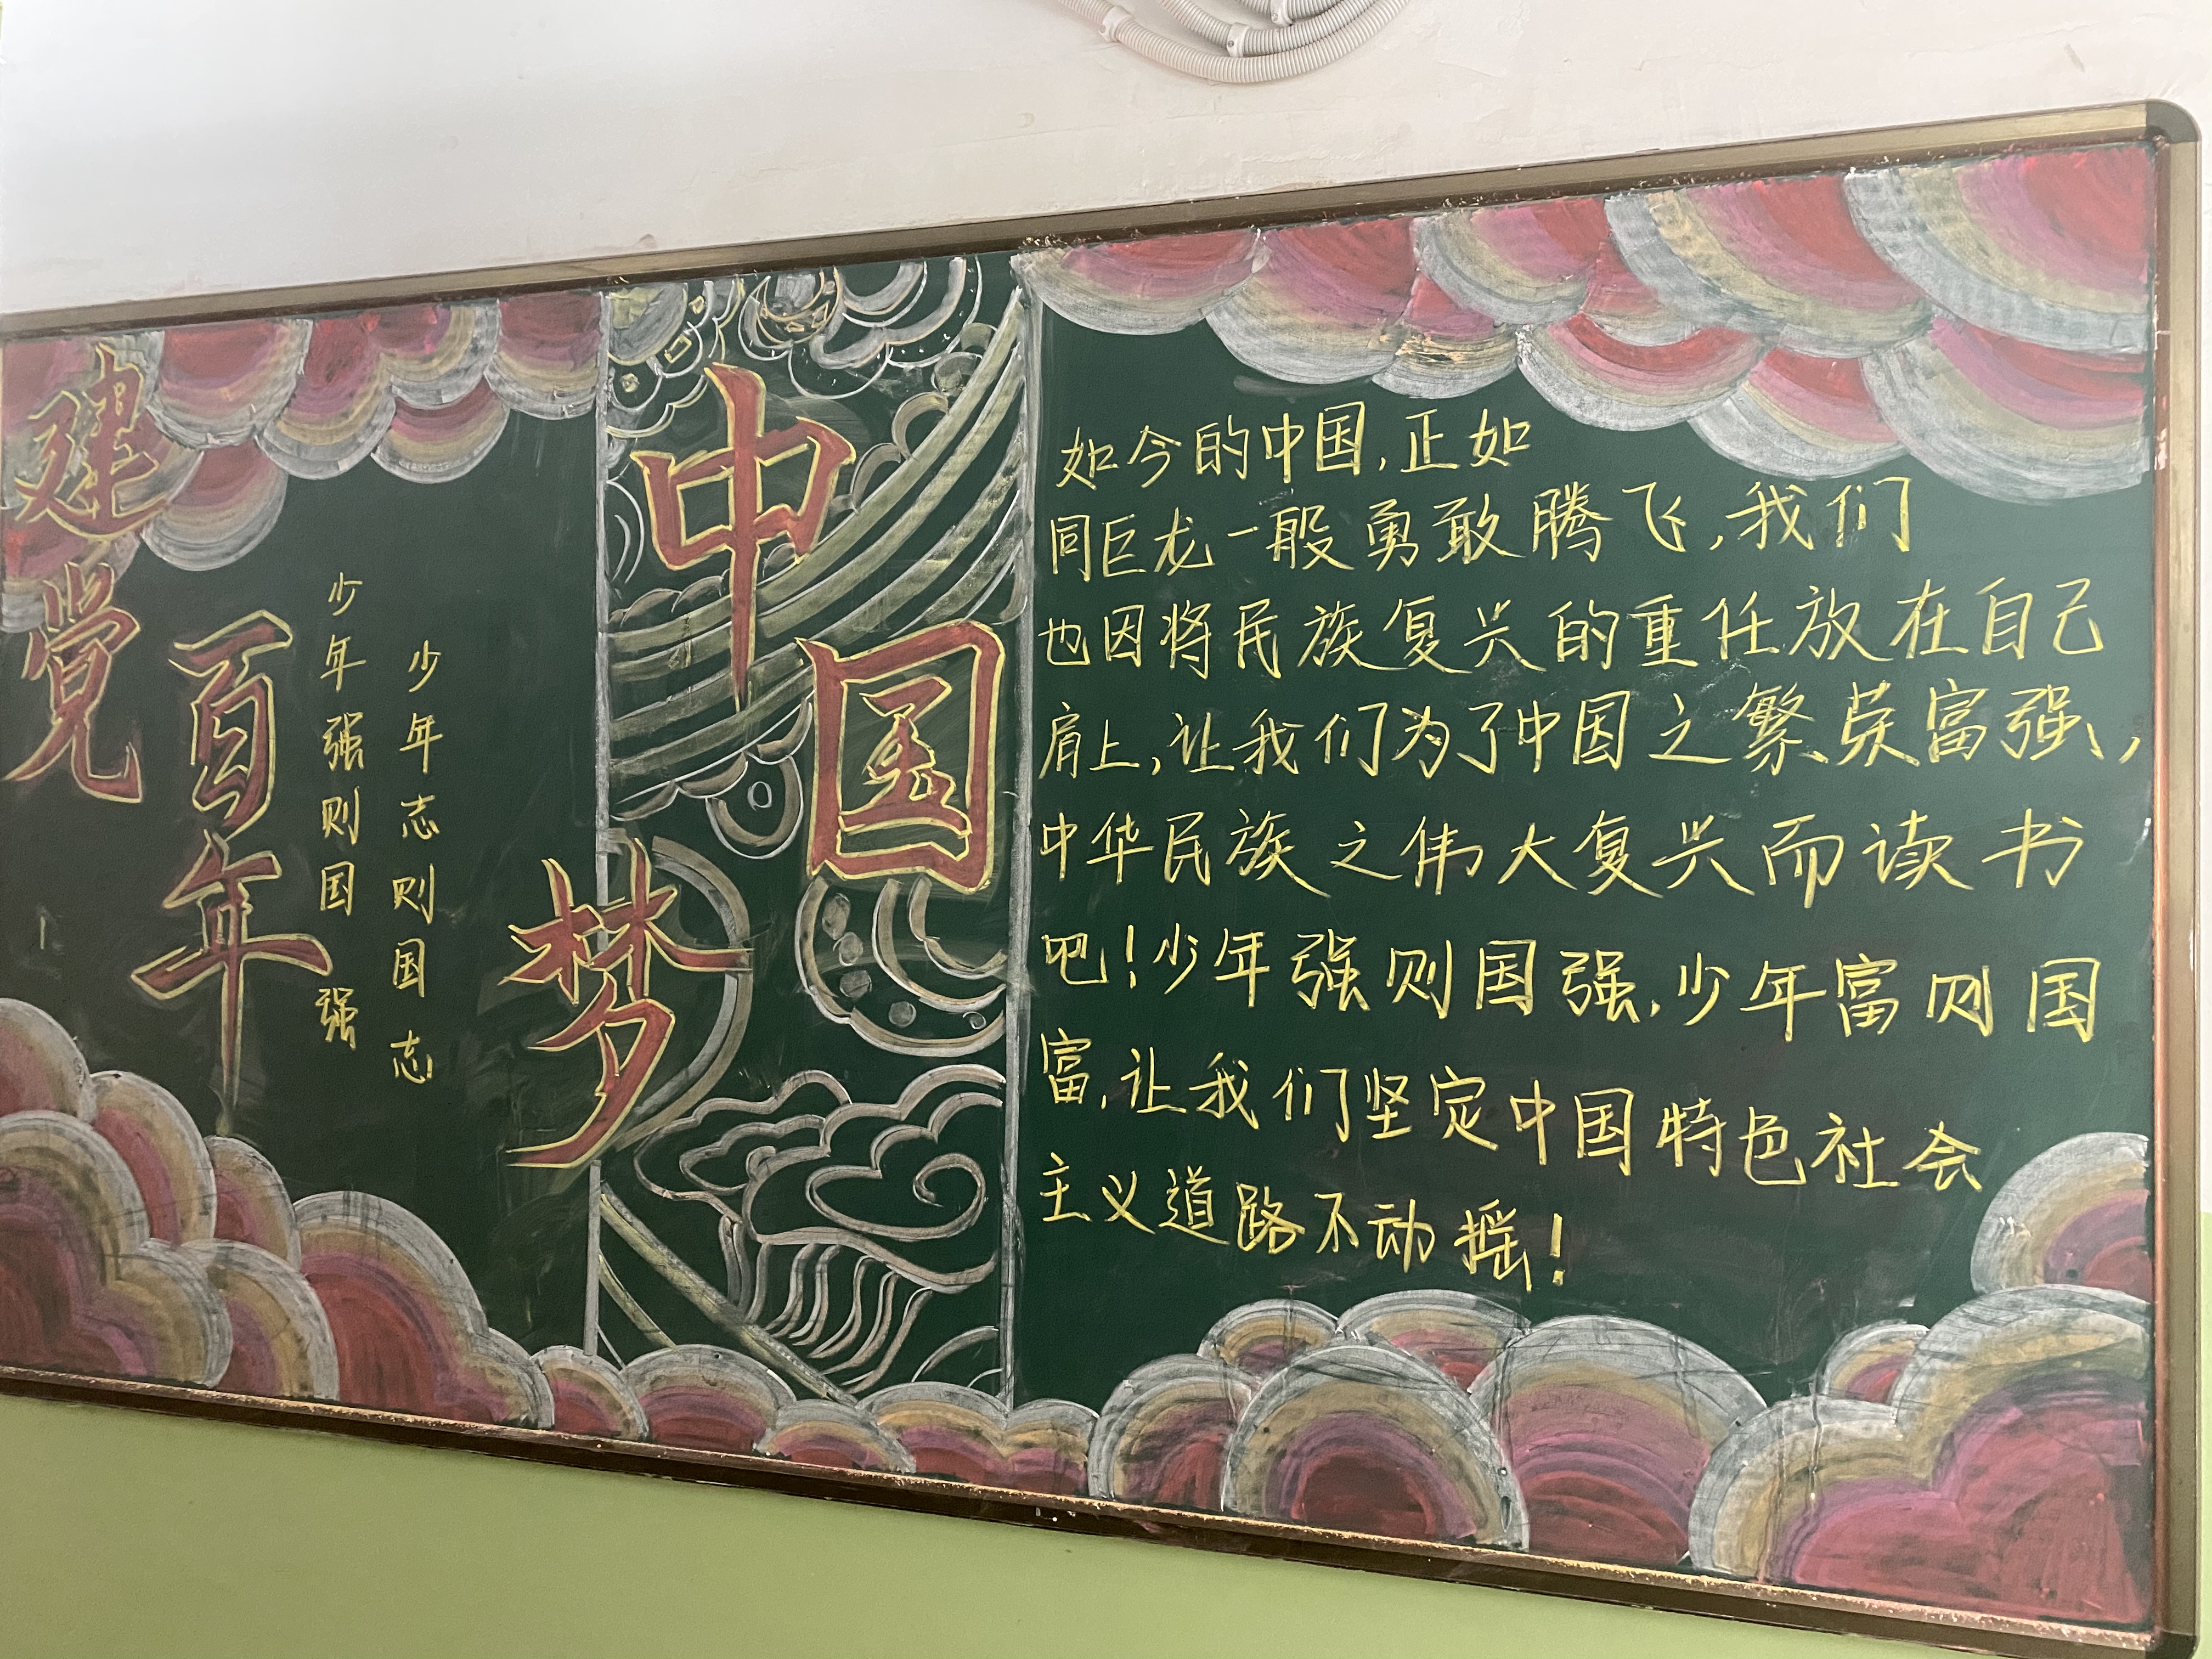 建党
百年
少年强则国强
少年志则国志
中国梦
如今的中国,正如
同巨龙一般勇敢腾飞,我们
也因将民族复兴的重任放在自己
肩上,让我们为了中国之繁荣富强,
中华民族之伟大复兴而读书
吧!少年强则国强,少年富则国
富,让我们坚定中国特色社会
主义道路不动摇!